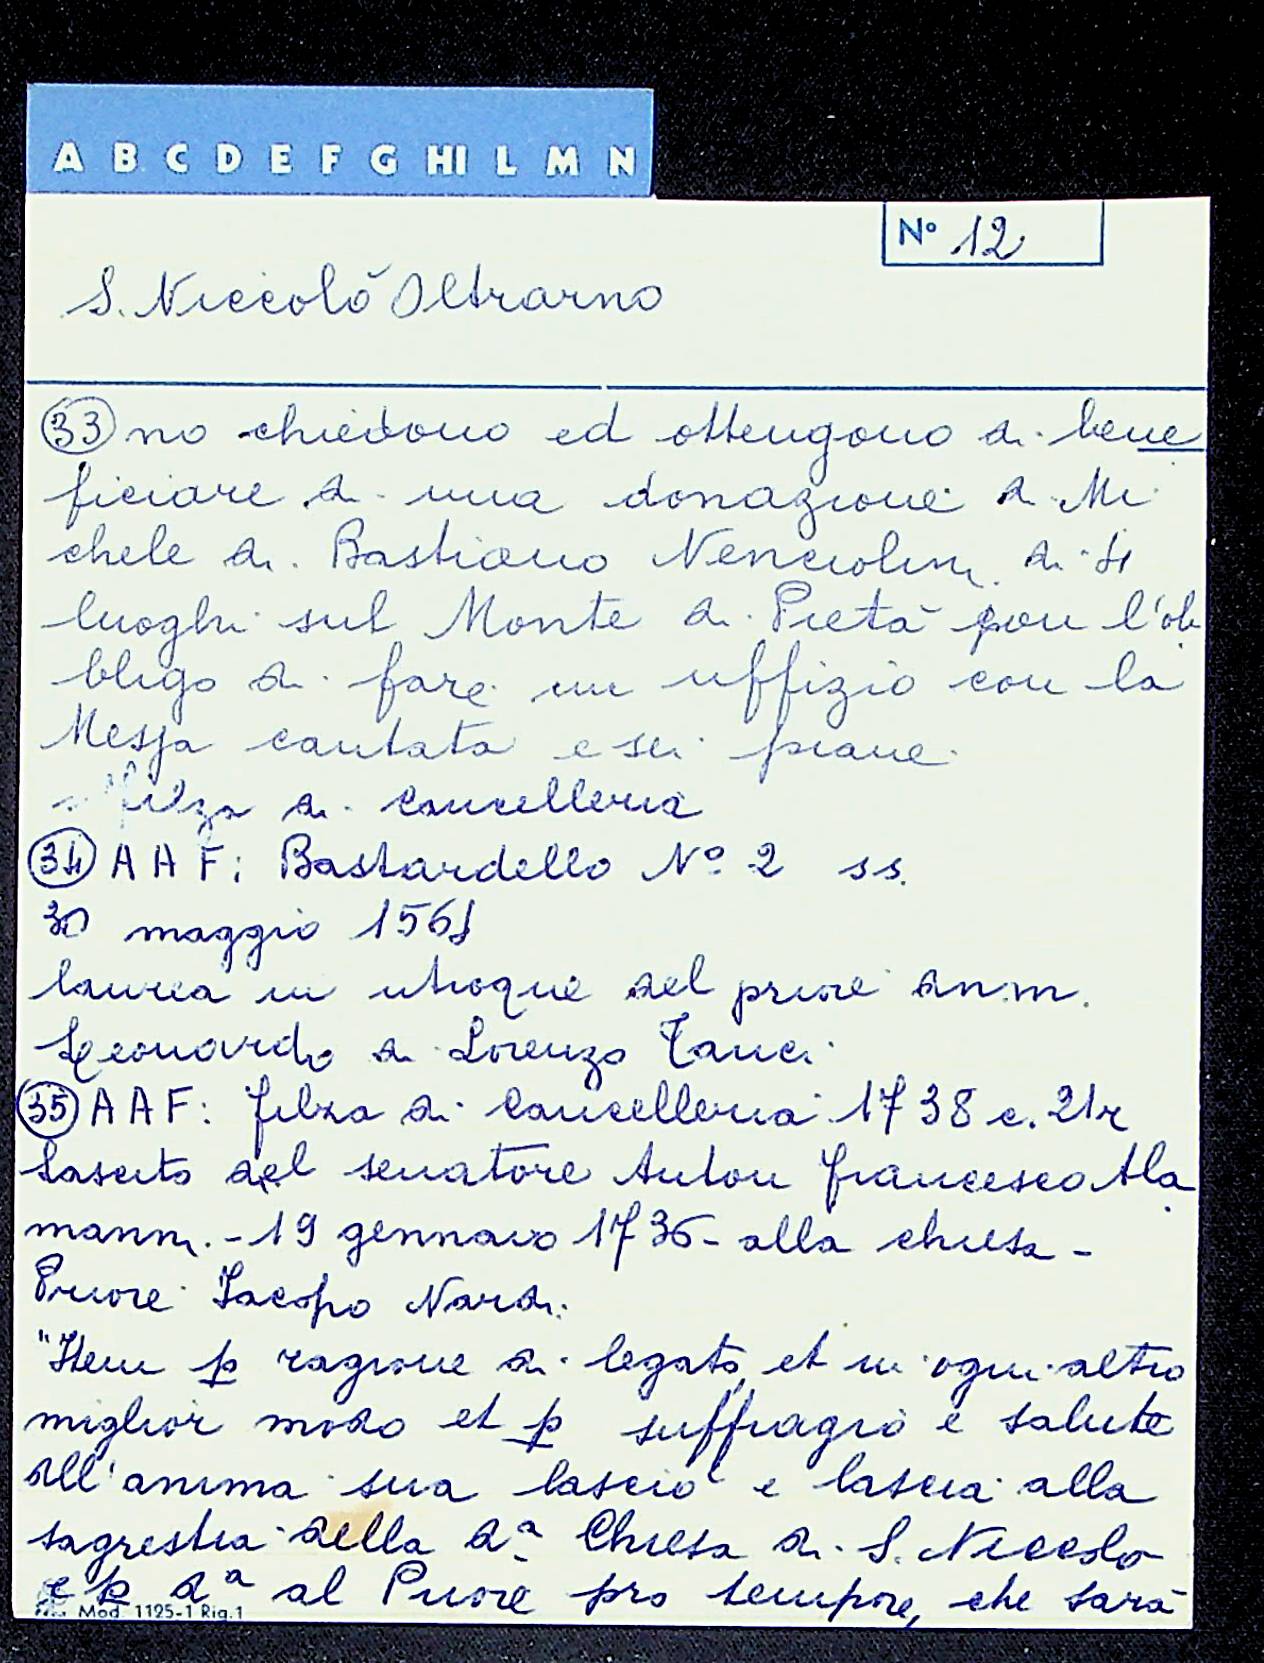 A B C D E F G HI L M N
N° 12
S. Niccolò Oltrarno
33 no chiedono ed ottengono di bene
ficiare di una donazione di Mi
chele di Bastiano Nenciolini di 4
luoghi sul Monte di Pietà con l'ob
bligo di fare un uffizio con la
Messa cantata e sei piane.
filza di cancelleria
34 A A F: Bastardello N° 2 ss.
30 maggio 1561
laurea in utroque del priore dn.m.
Leonardo di Lorenzo Tanci
35 A A F: filza di Cancelleria 1738 c. 21r
Lascito del senatore Anton Francesco Ala
manni - 19 gennaio 1736 - alla chiesa -
Priore Iacopo Nardi:
"Item p ragione di legato, et in ogni altro
miglior modo et p suffragio e salute
dell'anima sua lasciò e lascia alla
sagrestia della d.ª Chiesa di S. Niccolò
e p d.ª al Priore pro tempore, che sarà
Mod. 1125-1 Rig.1